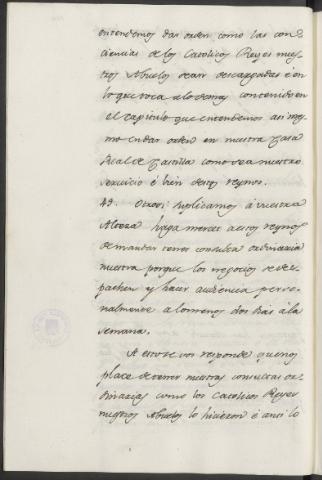 entendemos dar orden como las con=
ciencias de los Catolicos Reyes nues=
tros Abuelos sean descargadas é en
lo que toca a lo demas contenido en
el capitulo que entendemos asi mes=
mo en dar orden en nuestra Casa
Real de Castilla como sea nuestro
servicio é bien destos reynos.
49. Otrosi: suplicamos á vuestra
Alteza haga merced a estos reynos
de mandar tener consulta ordinaria
nuestra porque los negocios se des=
pachen y hacer audiencia perso=
nalmente a lo menos dos dias á la
semana.
A esto se vos responde que nos
place de tener nuestras consultas or=
dinarias como los Catolicos Reyes
nuestros Abuelos lo hicieron é ansi lo